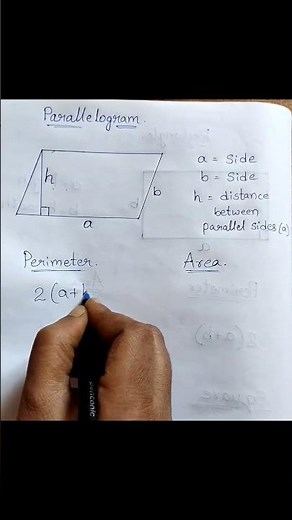 Parallelogram.
a = Side
b = Side
h = distance
between
parallel sides (a)
h
b
a
Perimeter.
Area.
2(a+